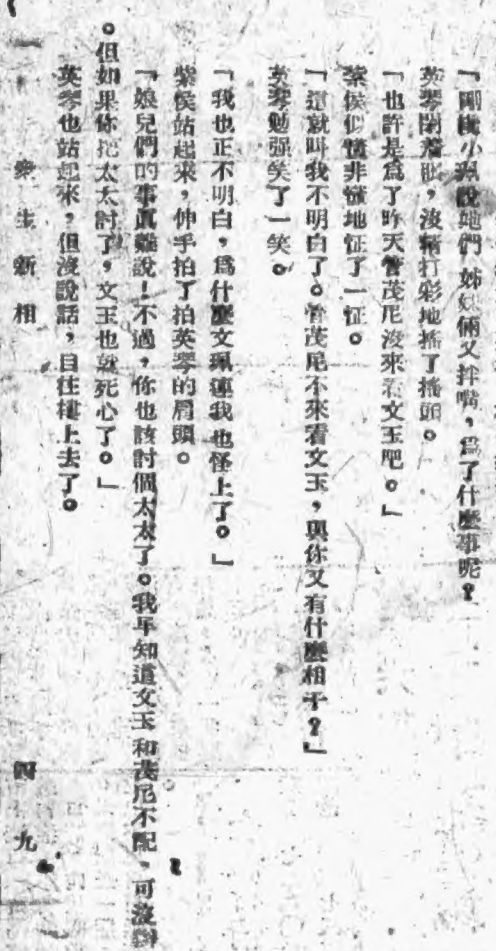 「剛纔小珮說她們姊妹倆又拌嘴，爲了什麼事呢？
英琴閉着眼，沒精打彩地搖了搖頭。
「也許是爲了昨天管茂尼沒來看文玉吧。」
紫侯似懂非懂地怔了一怔。
「這就叫我不明白了。管茂尼不來看文玉，與你又有什麼相干？」
英琴勉强笑了一笑。
「我也正不明白，爲什麼文珮連我也怪上了。」
紫侯站起來，伸手拍了拍英琴的肩頭。
「娘兒們的事眞難說！不過，你也該討個太太了。我早知道文玉和茂尼不配，可沒
。但如果你把太太討了，文玉也就死心了。」
英琴也站起來，但沒說話，自往樓上去了。
衆生新相
四九